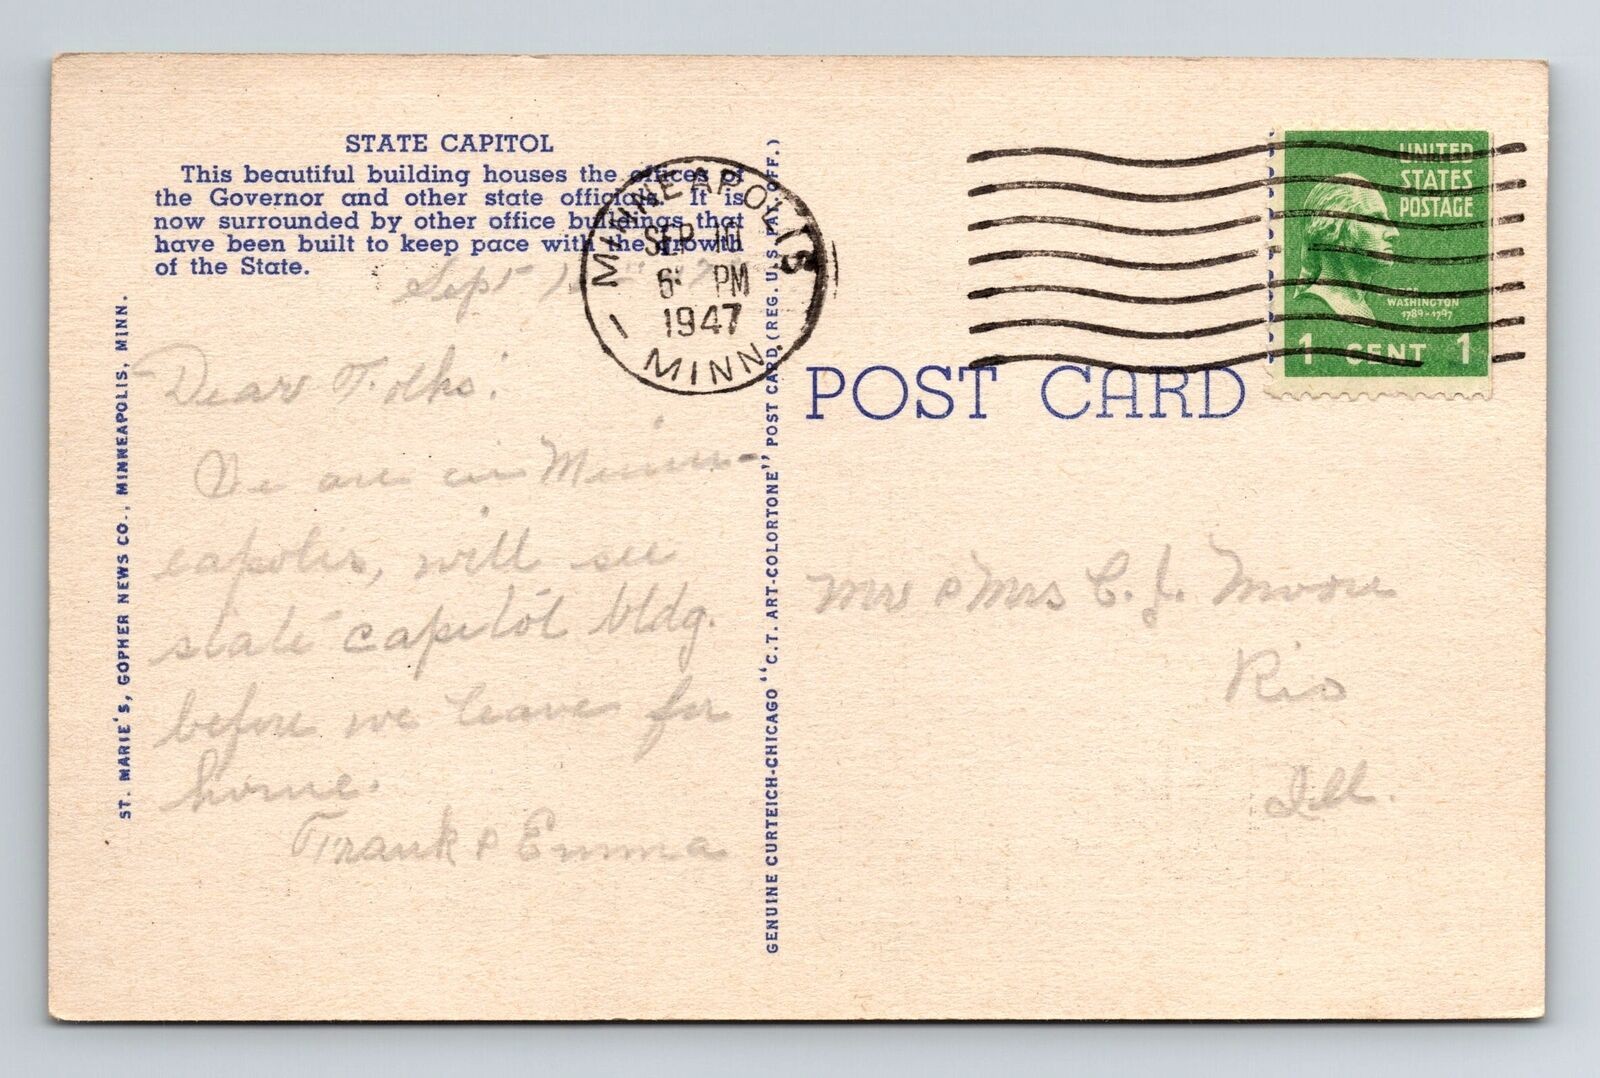 STATE CAPITOL
This beautiful building houses the offices of
the Governor and other state officials. It is
now surrounded by other office buildings that
have been built to keep pace with the growth
of the State.
Sept
Dear Folks:
We are in Minne-
apolis, will see
state capitol bldg.
before we leave for
home.
Frank & Emma
ST. MARIE'S, GOPHER NEWS CO., MINNEAPOLIS, MINN.
MINNEAPOLIS
SEP
PM
1947
1 MINN.
GENUINE CURTEICH-CHICAGO "C.T. ART-COLORTONE" POST CARD (REG. U.S. PAT. OFF.)
POST CARD
UNITED
STATES
POSTAGE
WASHINGTON
1789-1797
1 CENT 1
Mr & Mrs C. J. Moore
Rio
Ill.